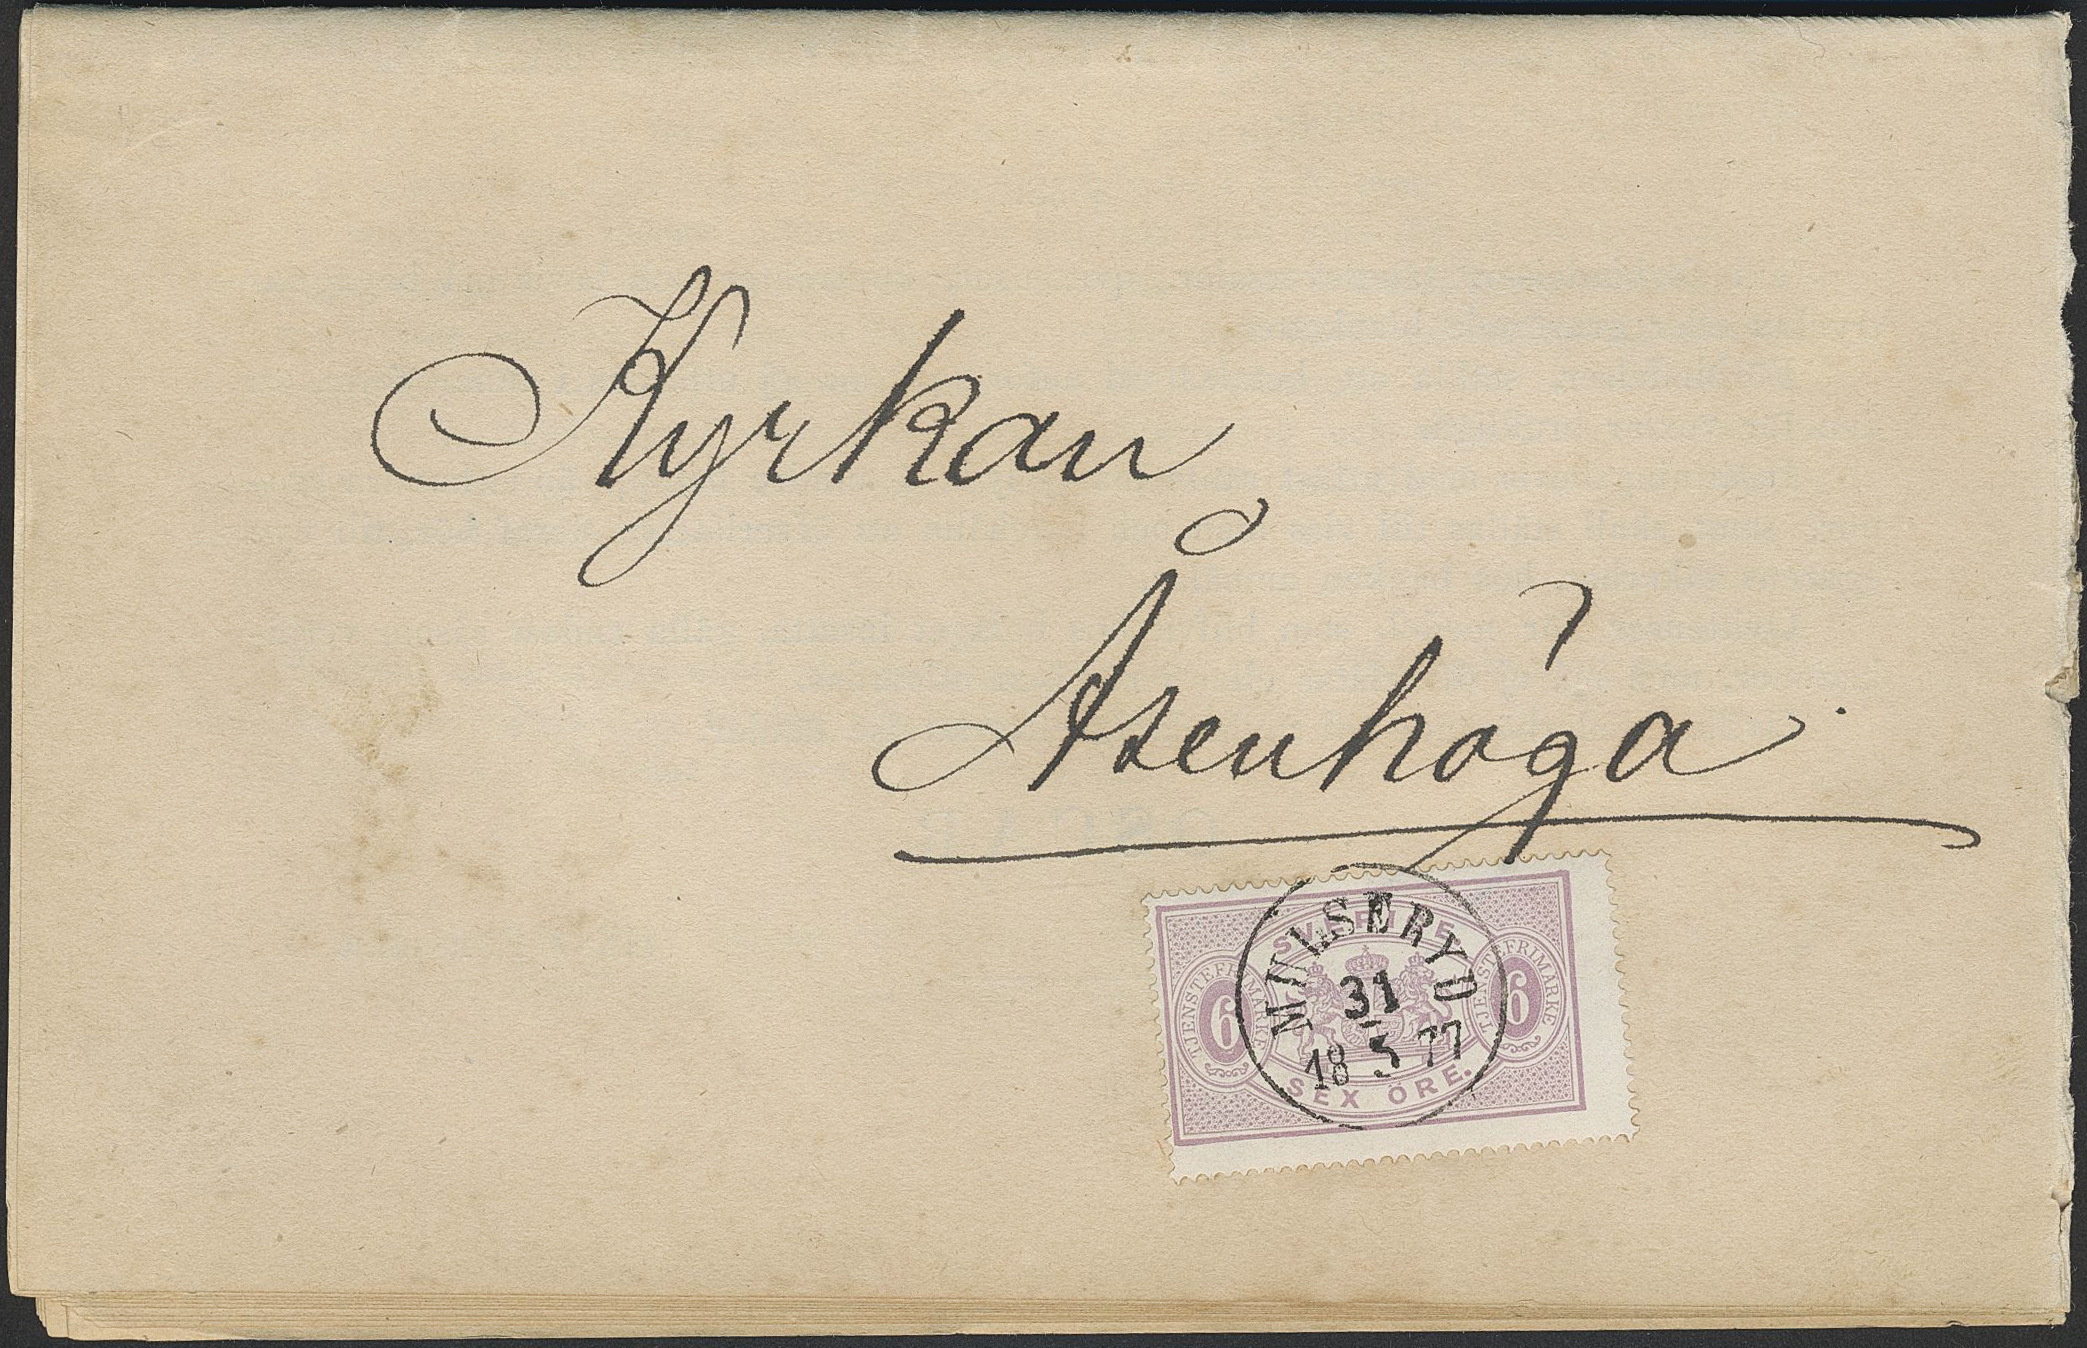 Kyrkan
Åsenhöga
SVERIGE.
TJENSTEFRIMÄRKE
6
TJENSTEFRIMÄRKE
6
SEX ÖRE.
MULSERYD
31
18 5 77